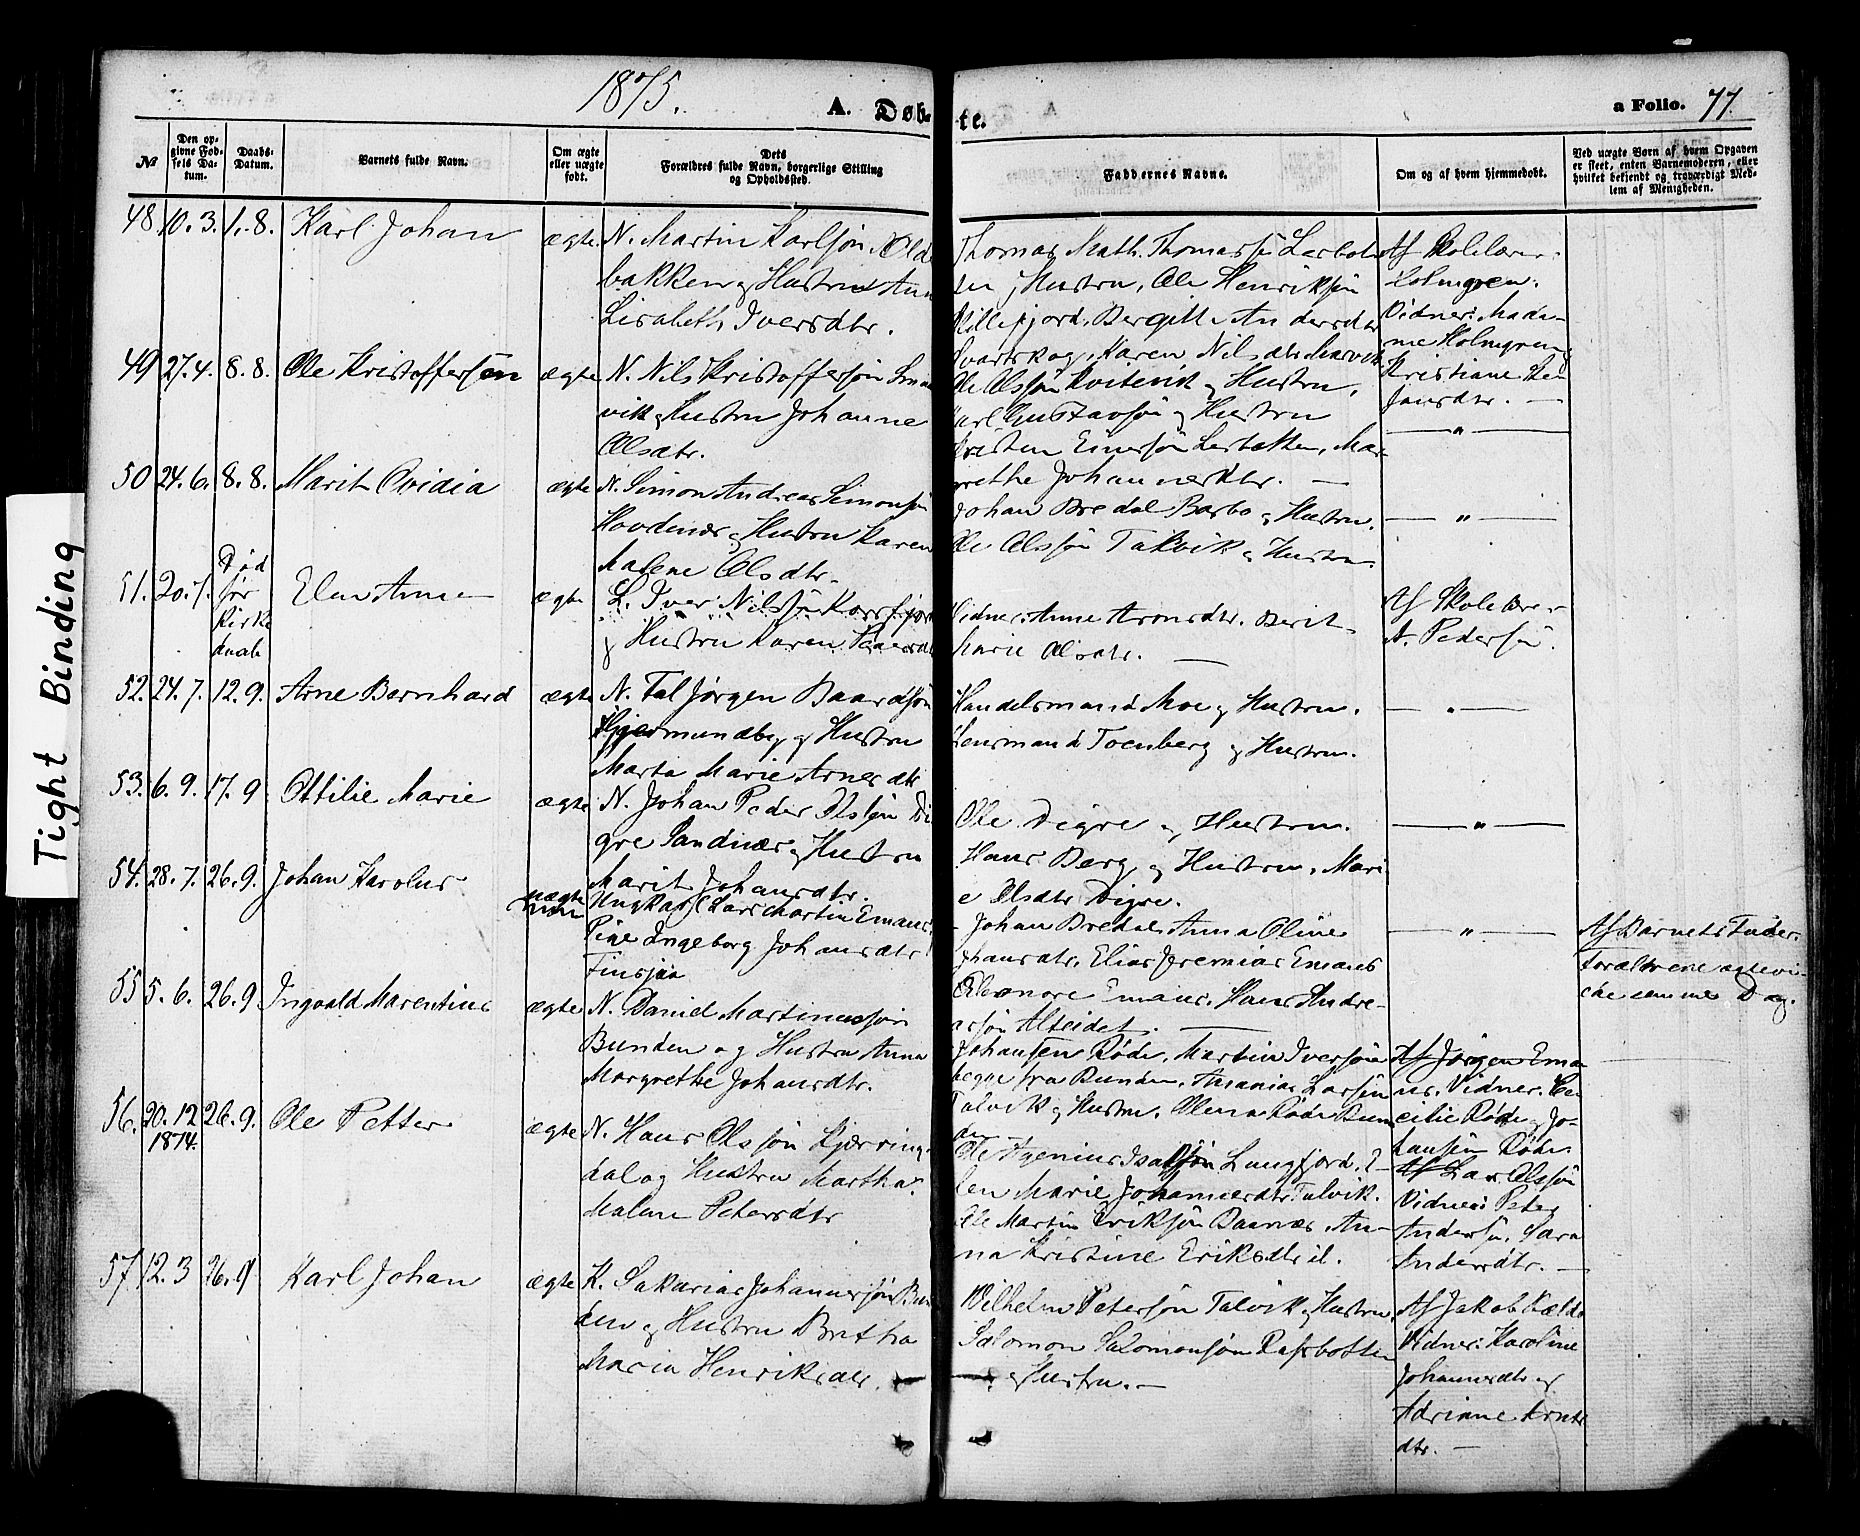 1875.
A. Døb-
te.
a Folio. 77.
Tight Binding
№
Den op-
givne Fød-
sels Da-
tum.
Daabs-
Datum.
Barnets fulde Navn.
Om ægte
eller uægte
født.
Dets
Forældres fulde Navn, borgerlige Stilling
og Opholdssted.
Faddernes Navne.
Om og af hvem hjemmedøbt.
Ved uægte Børn af hvem Opgaven
er skeet, enten Barnemoderen, eller
hvilket bekjendt og troværdigt Med-
lem af Menigheden.
48 10.3. 1.8. Karl Johan ægte N. Martin Karlsøn
bakken og Hustru
Lisabeth Iversdtr.
Thomas Math. Thomassøn
Hustru, Ole Henriksøn
Killefjord, Bergitte Andersdtr
Af Skolelærer
Holmgren.
Vidner: Mada-
me Holmgren og
Kristiane
49 27.4. 8.8. Ole Kristoffersøn ægte N. Nils Kristoffersøn
vik og Hustru Johanne
Olsdtr.
Svartskog, Karen Nilsdtr
Ole Olsøn Kvitevik og Hustru,
Karl Gustavsøn og Hustru
— " —
50 24.6. 8.8. Marit Ovidia ægte N. Simon Andreas Simonsøn
og Hustru Karen
Malene Olsdtr.
Kristen Einersøn
grethe Johannesdtr. —
Johan Bredal Barbo og Hustru.
Ole Olssøn Talvik og Hustru
— " —
51. 20.7. Død
før
Kirke
daab
Elen Anne ægte L. Iver Nilsøn Korsfjord
og Hustru Karen
Vidner: Anne Aronsdtr. Berit
Marie Olsdtr. —
Af Skolelærer
A. Pedersøn.
52. 24.7. 12.9. Arne Bernhard ægte N. Tal Jørgen Baardsøn
Hjermundby og Hustru
Marta Marie Arnesdtr
Handelsmand Moe og Hustru.
Lensmand Toenberg og Hustru.
— " —
53. 6.9. 17.9 Ottilie Marie ægte N. Johan Peder Olsøn Di-
gre Sandnes og Hustru
Marit Johansdtr.
Ole Digre og Hustru.
Hans Berg og Hustru, Mari-
e Olsdtr Digre.
— " —
54. 28.7. 26.9. Johan Karolus uægte
Ungkarl Lars Martin Emaus,
Pige Ingeborg Johansdtr
Johan Bredal, Anna Oline
Johansdtr, Elias Jeremias Emaus
Eleonore Emaus, Hans Andre-
assøn Alteidet. —
— " —
Af Barnets Fader.
Forældrene ægtevi-
ede samme Dag.
55 5.6. 26.9 Ingvald Marentius ægte N. Daniel Martinussøn
Bunden og Hustru Anna
Margrethe Johansdtr.
Johansen Røde, Martin Iversøn
begge fra Bunden, Ananias Larsøn
Talvik og Hustru, Olena Røde Bun-
den
Af Jørgen Ema-
us. Vidner: Ce-
cilie Røde og Jo-
hansen Røde
56. 20.12 1874. 26.9. Ole Petter ægte N. Hans Olssøn Kjerring-
dal og Hustru Martha
Malene Petersdtr
Ole Langfjord. E-
len Marie Johannesdtr Talvik.
Ole Martin Eriksøn An-
na Kristine Eriksdtr
Af Lars Olssøn
Vidner: Peter
Andersøn, Sara
Andersdtr. —
57 12.3 26.9 Karl Johan ægte K. Sakarias Johannessøn Bun-
den og Hustru Britha
Maria Henriksdtr.
Vilhelm Petersøn Talvik og Hustru.
Salomon Salomonsøn Rafsbotten
og Hustru. —
Af Jakob
Vidner: Karoline
Johannesdtr og
Adrianne
dtr. —